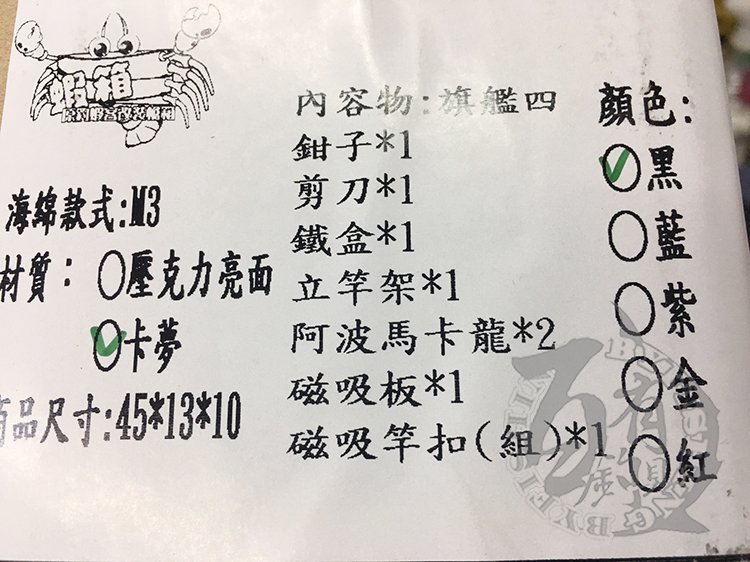 蝦箱
海綿款式:M3
材質：○壓克力亮面
○卡夢
商品尺寸:45*13*10
內容物:旗艦四
鉗子*1
剪刀*1
鐵盒*1
立竿架*1
阿波馬卡龍*2
磁吸板*1
磁吸竿扣(組)*1
顏色:
○黑
○藍
○紫
○金
○紅